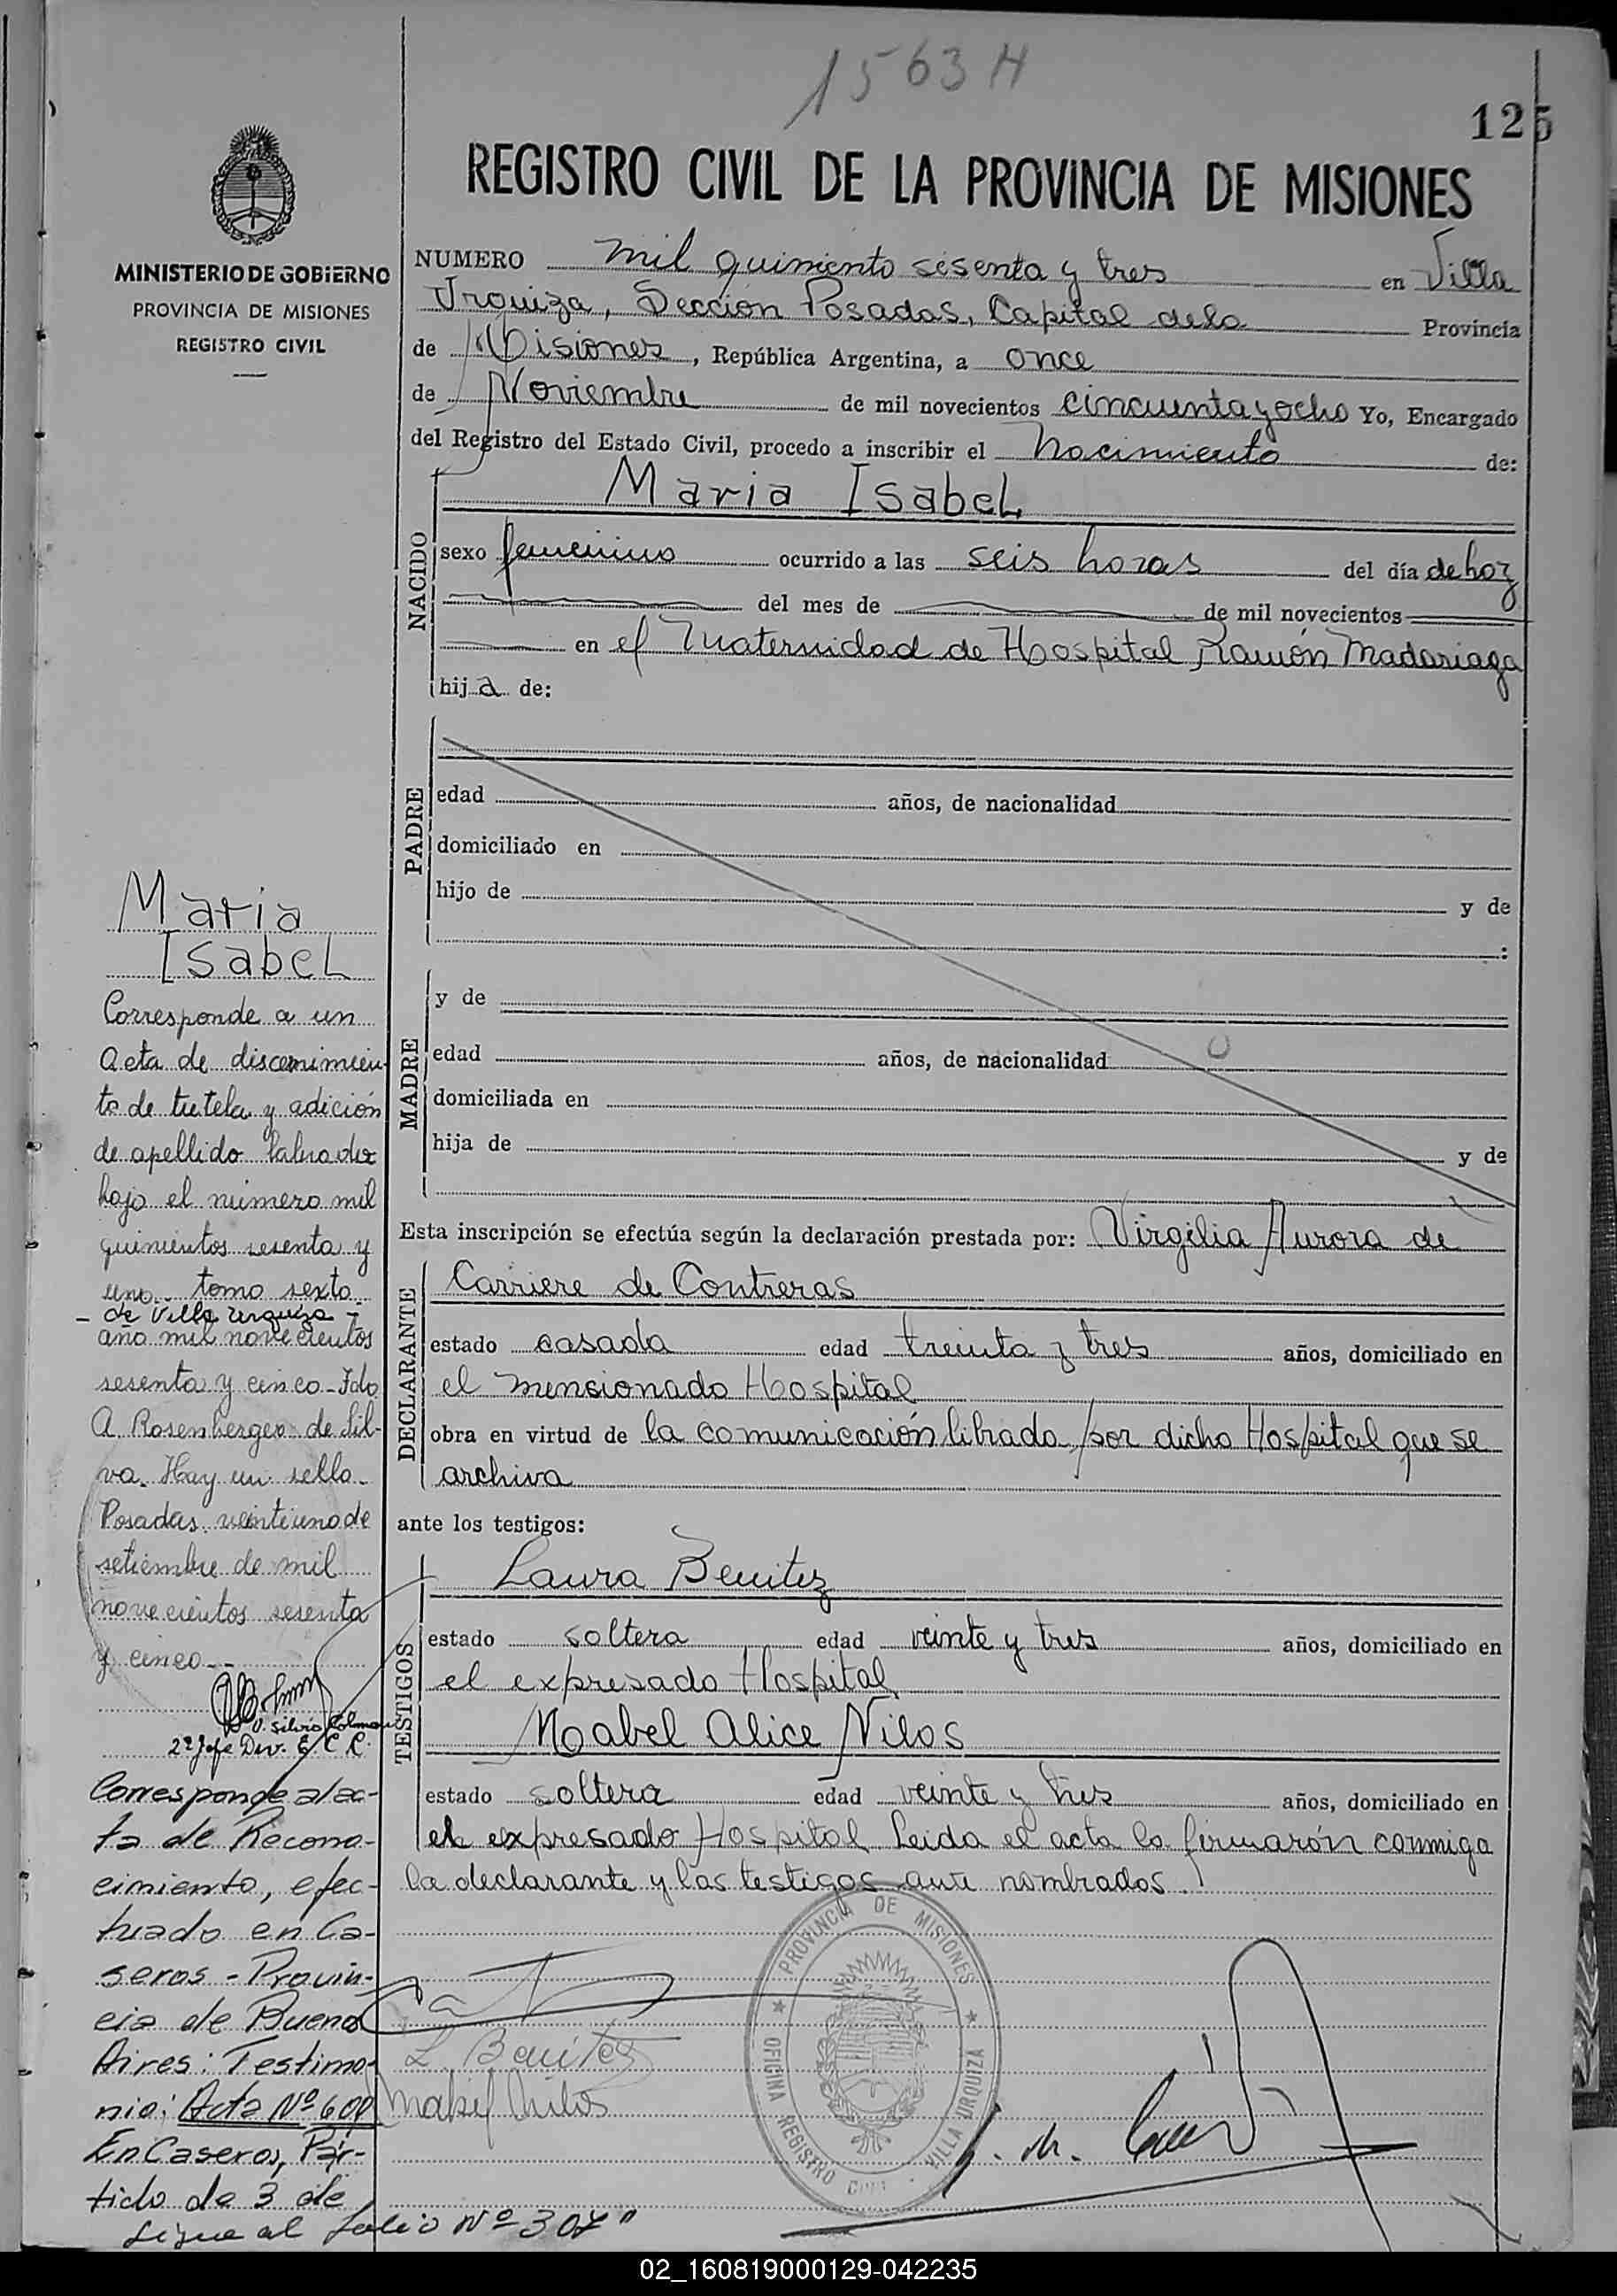 1563 H
125
REGISTRO CIVIL DE LA PROVINCIA DE MISIONES
MINISTERIO DE GOBIERNO
PROVINCIA DE MISIONES
REGISTRO CIVIL
NUMERO mil quiniento sesenta y tres en Villa
Urquiza, Sección Posadas, Capital dela Provincia
de Misiones, República Argentina, a once
de Noviembre de mil novecientos cincuenta y ocho Yo, Encargado
del Registro del Estado Civil, procedo a inscribir el nacimiento de:
Maria Isabel
NACIDO
sexo femenino ocurrido a las seis horas del día de hoy
del mes de de mil novecientos
en el Maternidad de Hospital Ramón Madariaga
hija de:
PADRE
edad años, de nacionalidad
domiciliado en
hijo de y de
:
MADRE
y de
edad años, de nacionalidad
domiciliada en
hija de y de
Esta inscripción se efectúa según la declaración prestada por: Virgilia Aurora de
Carriere de Contreras
DECLARANTE
estado casada edad treinta y tres años, domiciliado en
el mencionado Hospital
obra en virtud de la comunicación librada por dicho Hospital que se
archiva
ante los testigos:
Laura Benitez
TESTIGOS
estado soltera edad veinte y tres años, domiciliado en
el expresado Hospital
Mabel Alice Nilos
estado soltera edad veinte y tres años, domiciliado en
el expresado Hospital Leida el acta la firmarón conmigo
la declarante y las testigos ante nombrados.
L Benitez
Mabel Nilos
PROVINCIA DE MISIONES
OFICINA REGISTRO CIVIL VILLA URQUIZA
Maria
Isabel
Corresponde a un
Acta de discernimien
to de tutela y adición
de apellido labrada
bajo el número mil
quinientos sesenta y
uno tomo sexto
- de Villa Urquiza -
año mil novecientos
sesenta y cinco - Ido
A. Rosenberger de Sil-
va. Hay un sello.
Posadas veintiuno de
setiembre de mil
novecientos sesenta
y cinco--
Silvio Colman
2º Jefe Div. E. C. R.
Corresponde al ac-
ta de Recono-
cimiento, efec-
tuado en Ca-
seros - Provin-
cia de Buenos
Aires: Testimo-
nio: Acta Nº 600
En Caseros, Par-
tido de 3 de
Sigue al folio Nº 307"
02_160819000129-042235